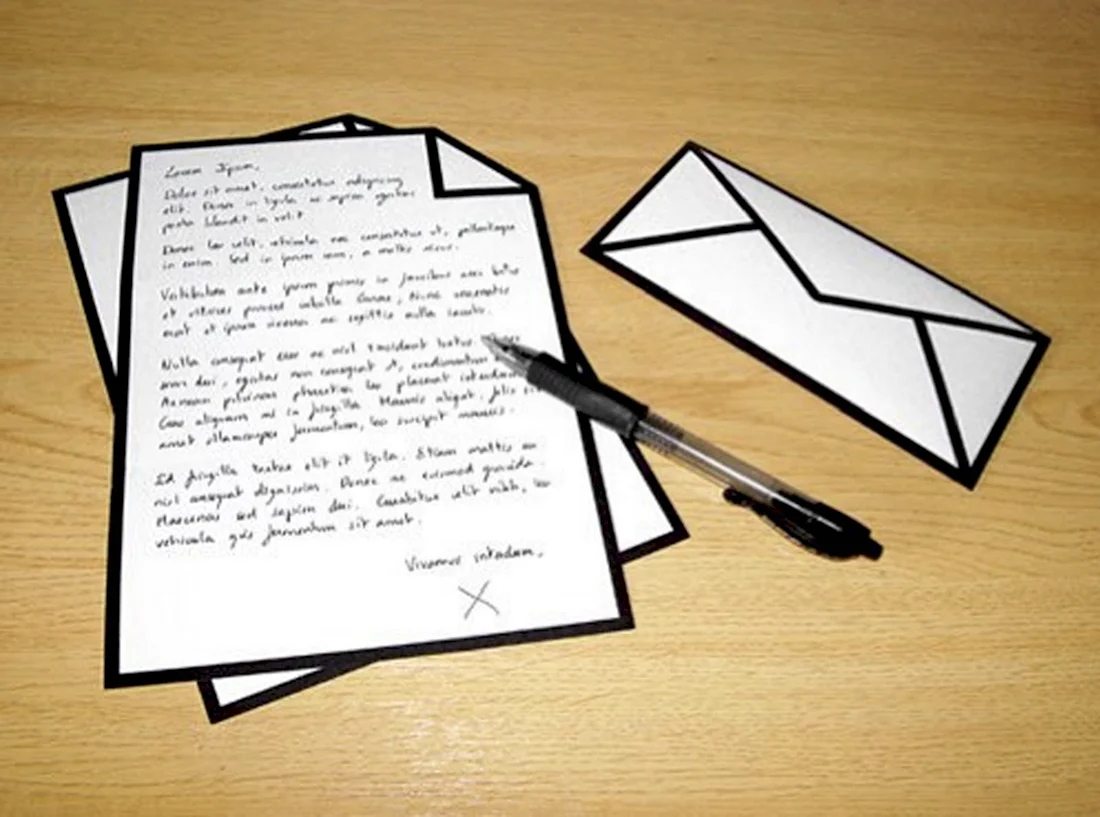 Lorem Ipsum,
Dolor sit amet, consectetur adipiscing
elit. Donec in ligula ac sapien egestas
porta blandit in velit.
Donec leo velit, vehicula nec consectetur et, pellentesque
in enim. Sed in ipsum sem, a mattis risus.
Vestibulum ante ipsum primis in faucibus orci luctus
et ultrices posuere cubilia Curae; Nunc venenatis
erat et ipsum rhoncus nec sagittis nulla iaculis.
Nulla consequat eros ac nisl tincidunt luctus.
sem dui, egestas non consequat et, condimentum
Aenean pulvinar pharetra leo placerat interdum.
Cras aliquam mi in fringilla. Mauris aliquet, felis sit
amet ullamcorper fermentum, leo suscipit mauris.
Id fringilla tortor elit et ligula. Etiam mattis
nisl consequat dignissim. Donec ac euismod gravida.
Maecenas sed sapien dui. Curabitur velit nibh,
vehicula quis fermentum sit amet.
Vivamus interdum,
X